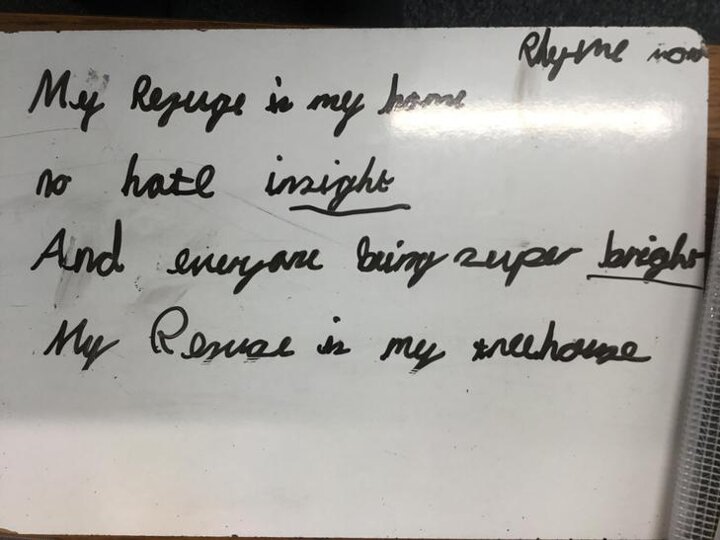 Rhyme now
My Refuge is my home
no hate insight
And everyone being super bright
My Refuge is my treehouse